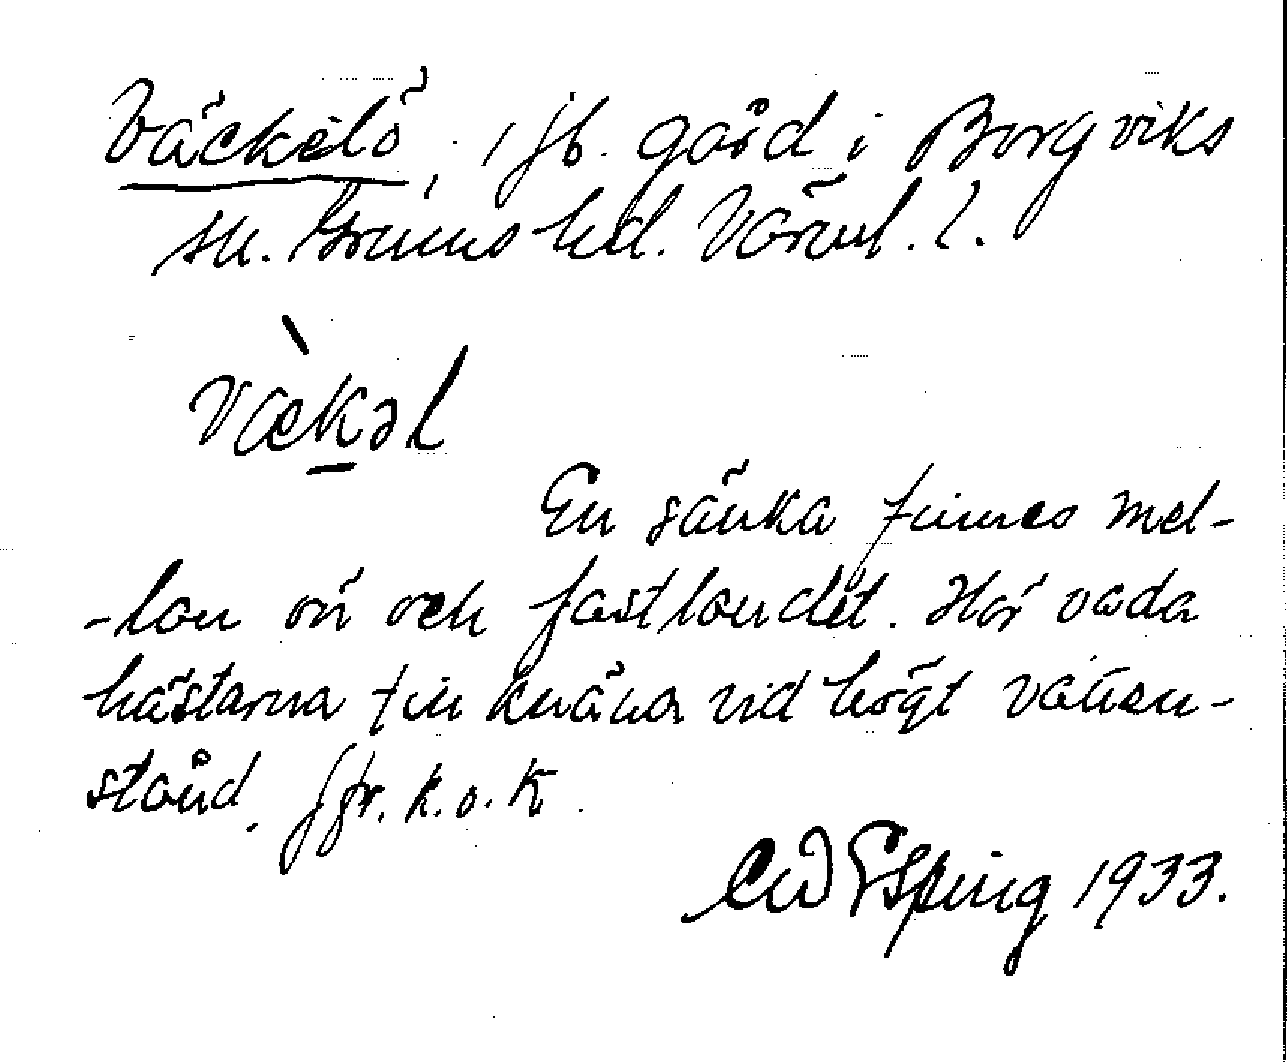 Väckelö, i jb. gård i Borgviks
sn. Grums hd. Värml. l.
vækəl
En sänka finnes mel-
-lan ön och fastlandet. Här vada
hästarna till knäna vid högt vatten-
stånd. Jfr. k. o. k.
CW Esping 1933.